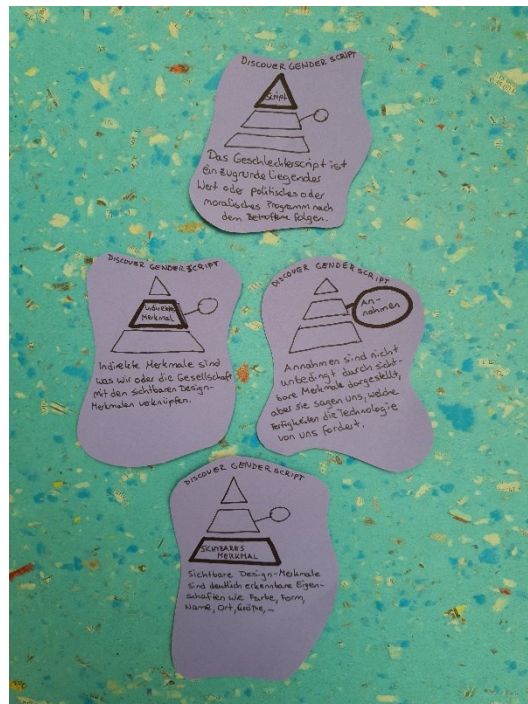 DISCOVER GENDER SCRIPT
Script
Das Geschlechterscript ist
ein zugrunde liegender
Wert oder politisches oder
moralisches Programm nach
dem Betroffene folgen.
DISCOVER GENDER SCRIPT
Indirekte
Merkmal
Indirekte Merkmale sind
was wir oder die Gesellschaft
mit den sichtbaren Design-
Merkmalen verknüpfen.
DISCOVER GENDER SCRIPT
An-
nahmen
Annahmen sind nicht
unbedingt durch sicht-
bare Merkmale dargestellt,
aber sie sagen uns, welche
Fertigkeiten die Technologie
von uns fordert.
DISCOVER GENDER SCRIPT
SICHTBARES
MERKMAL
Sichtbare Design-Merkmale
sind deutlich erkennbare Eigen-
schaften wie Farbe, Form,
Name, Ort, Größe, …